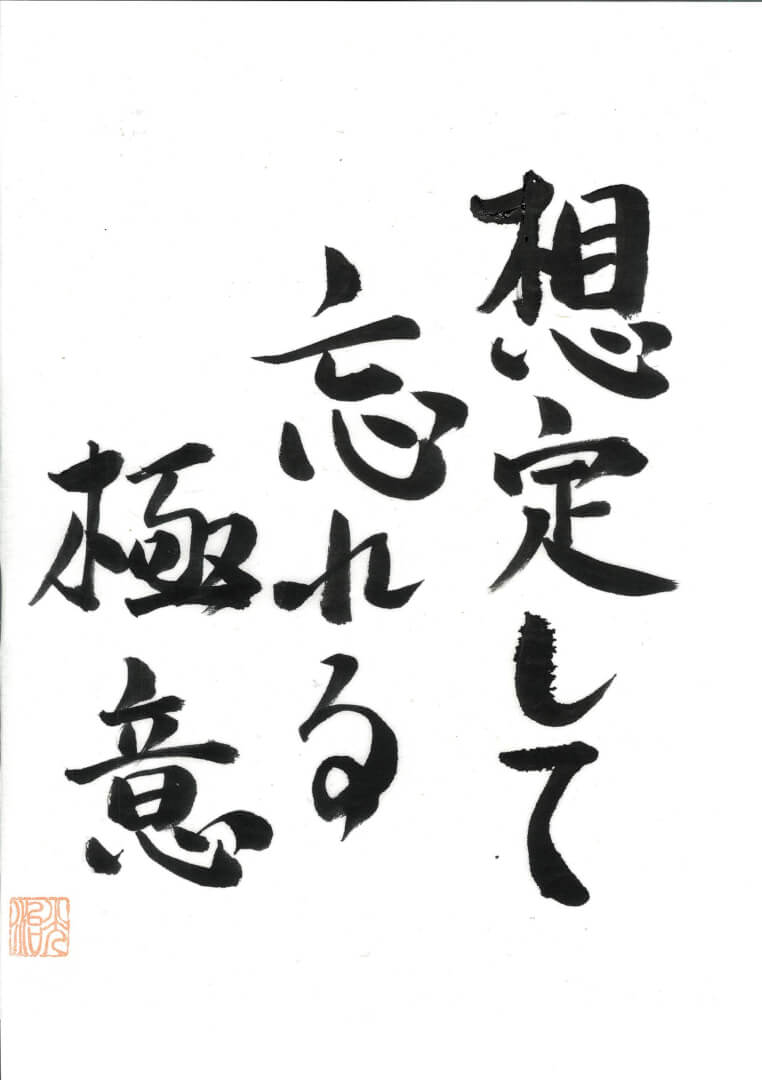 想定して
忘れる
極意